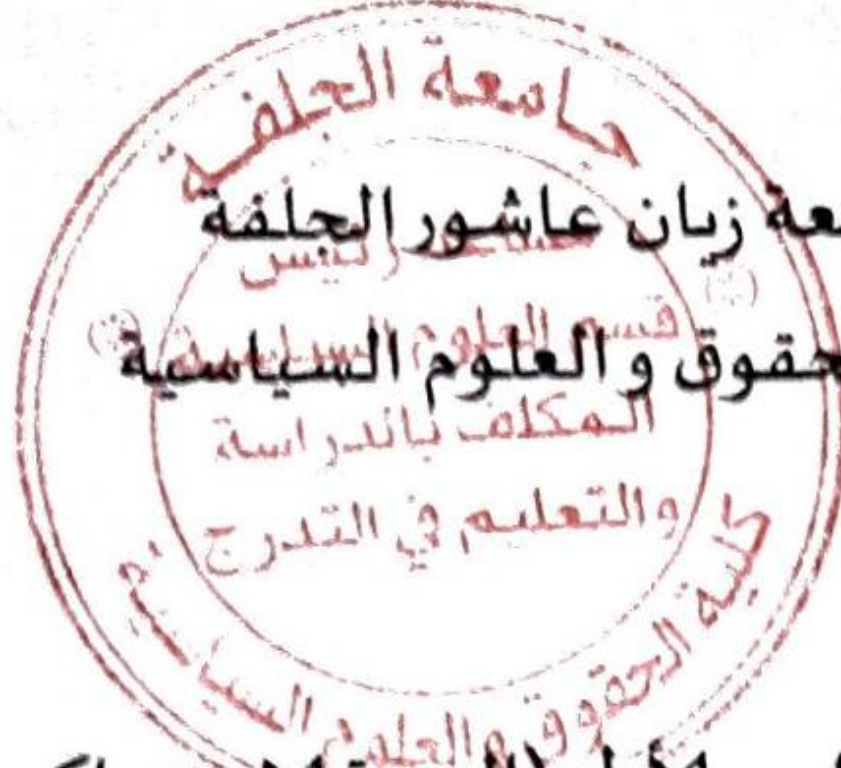 جامعة الجلفة
عة زيان عاشور الجلفة
مساعد رئيس
قسم العلوم السياسية
حقوق و العلوم السياسية
المكلف بالدراسة
والتعليم في التدرج
كلية الحقوق والعلوم السياسية